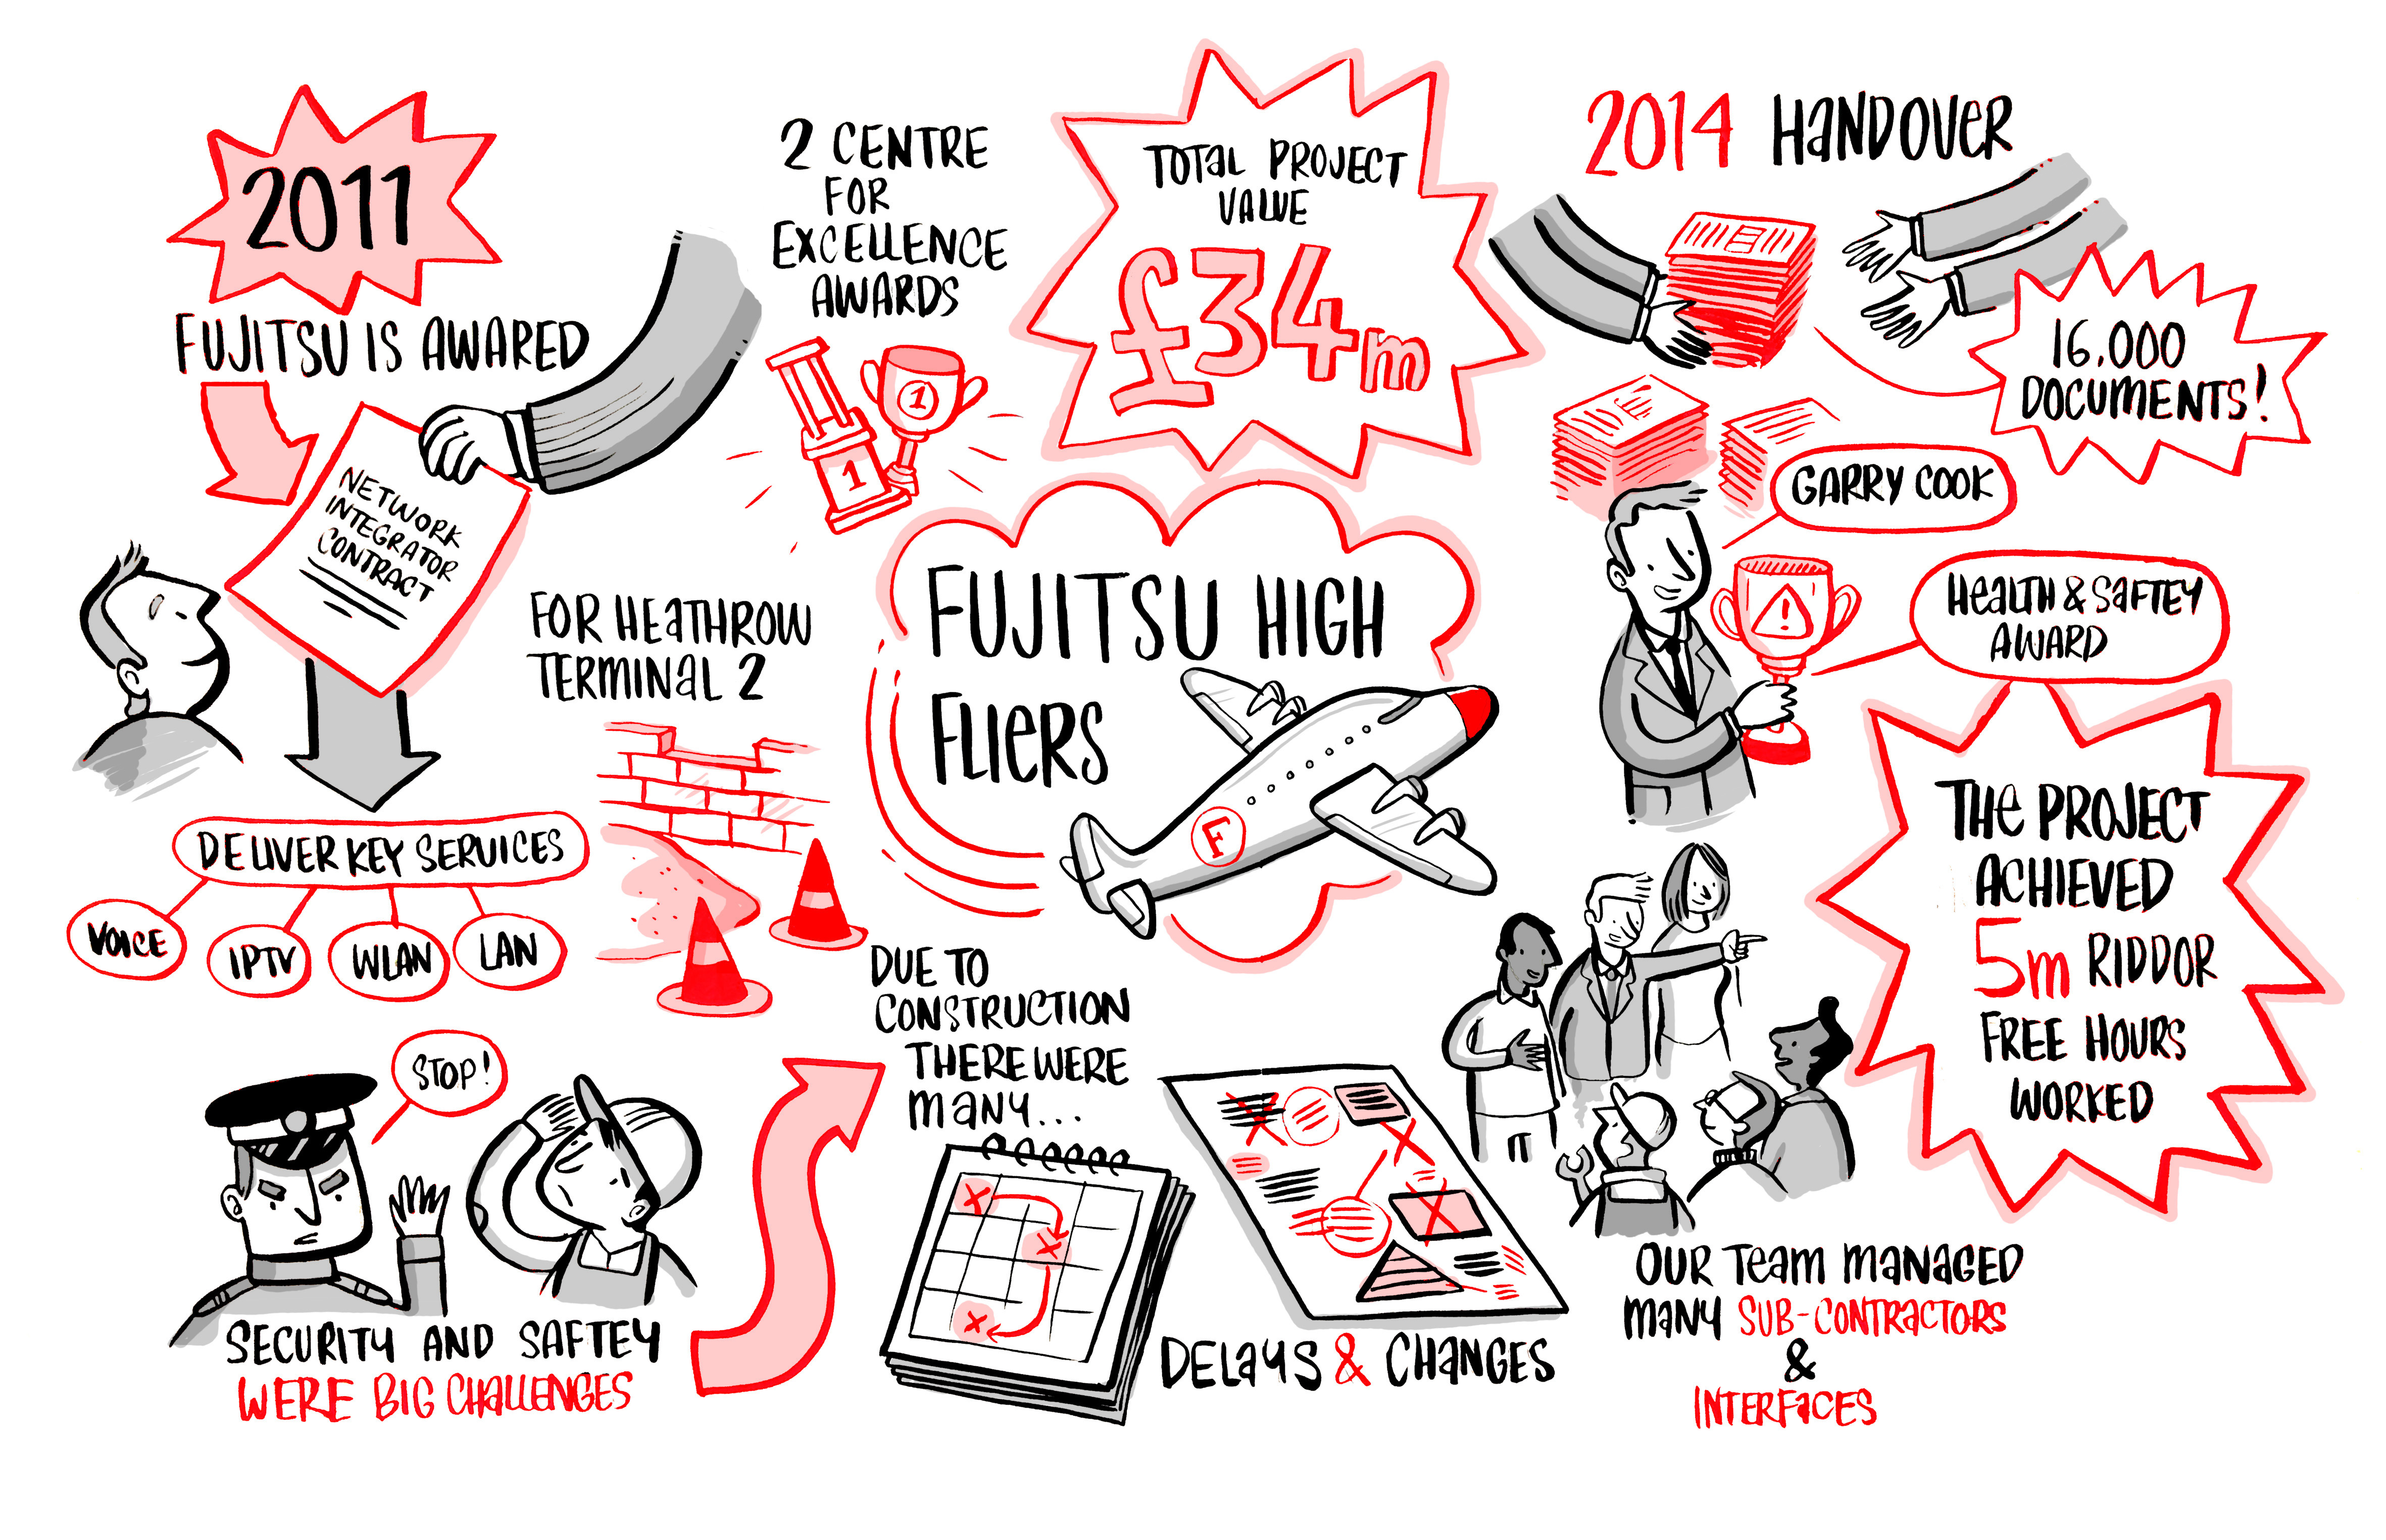 2011
FUJITSU IS AWARED
NETWORK
INTEGRATOR
CONTRACT
FOR HEATHROW
TERMINAL 2
DELIVER KEY SERVICES
VOICE
IPTV
WLAN
LAN
STOP!
SECURITY AND SAFTEY
WERE BIG CHALLENGES
2 CENTRE
FOR
EXCELLENCE
AWARDS
1
1
TOTAL PROJECT
VALUE
£34m
FUJITSU HIGH
FLIERS
F
DUE TO
CONSTRUCTION
THERE WERE
MANY...
DELAYS & CHANGES
2014 HANDOVER
16,000
DOCUMENTS!
GARRY COOK
HEALTH & SAFTEY
AWARD
!
THE PROJECT
ACHIEVED
5m RIDDOR
FREE HOURS
WORKED
OUR TEAM MANAGED
MANY SUB-CONTRACTORS
&
INTERFACES